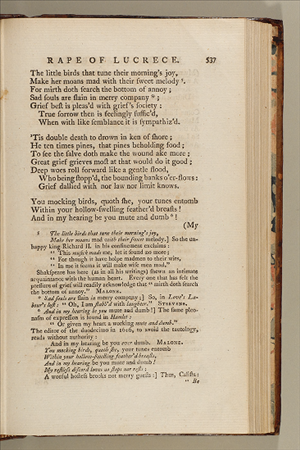 RAPE OF LUCRECE. 537
The little birds that tune their morning's joy,
Make her moans mad with their sweet melody⁵.
For mirth doth search the bottom of annoy;
Sad souls are slain in merry company⁶;
Grief best is pleas'd with grief's society:
True sorrow then is feelingly suffic'd,
When with like semblance it is sympathiz'd.
'Tis double death to drown in ken of shore;
He ten times pines, that pines beholding food;
To see the salve doth make the wound ake more;
Great grief grieves most at that would do it good;
Deep woes roll forward like a gentle flood,
Who being stopp'd, the bounding banks o'er-flows:
Grief dallied with nor law nor limit knows.
You mocking birds, quoth she, your tunes entomb
Within your hollow-swelling feather'd breasts!
And in my hearing be you mute and dumb!
(My
The little birds that tune their morning's joy,
Make her moans mad with their sweet melody.] So the un-
happy king Richard II. in his confinement exclaims:
" This musick mads me, let it sound no more;
" For though it have holpe madmen to their wits,
" In me it seems it will make wise men mad."
Shakspeare has here (as in all his writings) shewn an intimate
acquaintance with the human heart. Every one that has felt the
pressure of grief will readily acknowledge that " mirth doth search
the bottom of annoy." MALONE.
Sad souls are slain in merry company;] So, in Love's La-
bour's lost: " Oh, I am stabb'd with laughter." STEEVENS.
And in my hearing be you mute and dumb!] The same pleo-
nasm of expression is found in Hamlet:
" Or given my heart a working mute and dumb."
The editor of the duodecimo in 1616, to avoid the tautology,
reads without authority:
And in my hearing be you ever dumb. MALONE.
You mocking birds, quoth she, your tunes entomb
Within your hollow-swelling feather'd breasts,
And in my hearing be you mute and dumb!
My restless discord loves no stops nor rests;
A woeful hostess brooks not merry guests:] Thus, Calista:
" Be